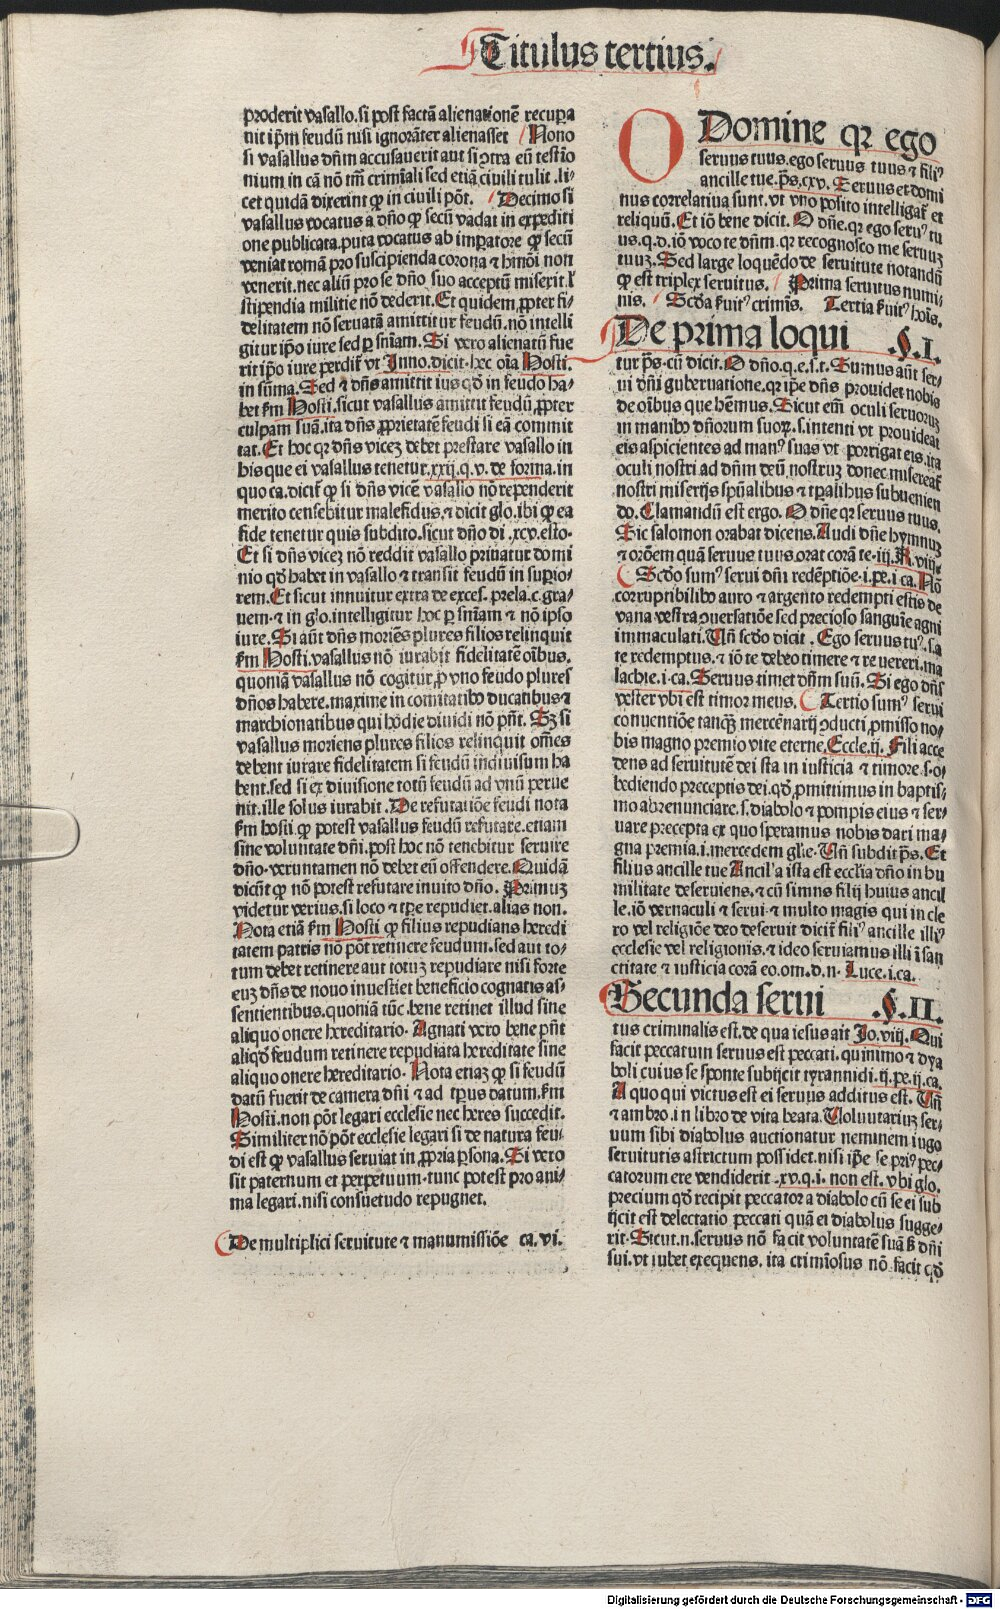 Titulus tertius.
proderit vasallo. si post factā alienationē recupa
uit ip̄m feudū nisi ignorāter alienasset Nono
si vasallus dn̄m accusauerit aut si ꝯtra eū testīo
nium in cā nō tm̄ crimīali sed etiā ciuili tulit. li-
cet quidā dixerint ꝙ in ciuili pōt. Decimo si
vasallus vocatus a dn̄o ꝙ secū vadat in expediti
one publicata. puta vocatus ab imꝑatore ꝙ secū
veniat romā pro suscipienda corona ⁊ hmōi non
venerit. nec aliū pro se dn̄o suo acceptū miserit. l̓
stipendia militie nō dederit. Et quidem ꝓpter fi-
delitatem nō seruatā amittitur feudū. nō intelli
gitur ip̄o iure sed ꝑ sn̄iam. Si vero alienatū fue
rit ip̄o iure perdit̄ vt Inno. dicit. hec oīa Hosti.
in sūma. Sed ⁊ dn̄s amittit ius qd̄ in feudo ha-
bet s̄m Hosti. sicut vasallus amittit feudū ꝓpter
culpam suā. ita dn̄s ꝓprietatē feudi si eā commit
tat. Et hoc qr dn̄s vicez debet prestare vasallo in
his que ei vasallus tenetur. xxij. q. v. de forma. in
quo ca. dicit̄ ꝙ si dn̄s vicē vasallo nō rependerit
merito censebitur malefidus. ⁊ dicit glo. ibi ꝙ ea
fide tenetur quis subdito. sicut dn̄o di. xcv. esto.
Et si dn̄s vicez nō reddit vasallo priuatur domi
nio qd̄ habet in vasallo ⁊ transit feudū in superio-
rem. Et sicut innuitur extra de exces. prela. c. gra-
uem. ⁊ in glo. intelligitur hoc ꝑ sn̄iam ⁊ nō ipso
iure. Si aūt dn̄s moriēs plures filios relinquit
s̄m Hosti. vasallus nō iurabit fidelitatē oībus.
quoniā vasallus nō cogitur ꝓ vno feudo plures
dn̄os habere. maxime in comitatibꝰ ducatibus ⁊
marchionatibus qui hodie diuidi nō pn̄t. Sz si
vasallus moriens plures filios relinquit om̄es
debent iurare fidelitatem si feudū indiuisum ha
bent. sed si ex diuisione totū feudū ad vnū perue
nit. ille solus iurabit. De refutatiōe feudi nota
s̄m hosti. ꝙ potest vasallus feudū refutare. etiam
sine voluntate dn̄i. post hoc nō tenebitur seruire
dn̄o. veruntamen nō debet eū offendere. Quidā
dicūt ꝙ nō potest refutare inuito dn̄o. Primuz
videtur verius. si loco ⁊ tpe repudiet. alias non.
Nota etiā s̄m Hosti ꝙ filius repudians heredi
tatem patris nō pōt retinere feudum. sed aut to-
tum debet retinere aut totuz repudiare nisi forte
euz dn̄s de nouo inuestiet beneficio cognatis as-
sentientibus. quoniā tūc bene retinet illud sine
aliquo onere hereditario. Agnati vero bene pn̄t
aliqd̄ feudum retinere repudiata hereditate sine
aliquo onere hereditario. Nota etiaz ꝙ si feudū
datū fuerit de camera dn̄i ⁊ ad tp̄us datum. s̄m
Hosti. non pōt legari ecclesie nec heres succedit.
Similiter nō pōt ecclesie legari si de natura feu-
di est ꝙ vasallus seruiat in ꝓpria ꝑsona. Si vero
sit paternum et perpetuum. tunc potest pro ani-
ma legari. nisi consuetudo repugnet.
De multiplici seruitute ⁊ manumissiōe ca. vi.
O Domine qr ego
seruus tuus. ego seruus tuus ⁊ filiꝰ
ancille tue. ps. cxv. Seruus et domi
nus correlatiua sunt. vt vno posito intelligat̄ et
reliquū. Et iō bene dicit. O dn̄e. qr ego seruꝰ tu
us. q. d. iō voco te dn̄m. qr recognosco me seruuz
tuuz. Sed large loquēdo de seruitute notandū
ꝙ est triplex seruitus. Prima seruitus numi-
nis. Scd̄a s̓uitꝰ crimīs. Tertia s̓uitꝰ hoīs.
De prima loqui .§.I.
tur ps. cū dicit. O dn̄o. q. e. s. t. Sumus aūt ser-
ui dn̄i gubernatione. qr ip̄e dn̄s prouidet nobis
de oībus que hēmus. Sicut em̄ oculi seruoruz
in manibꝰ dn̄orum suoꝝ. s. intenti vt prouideat
eis aspicientes ad manꝰ suas vt porrigat eis. ita
oculi nostri ad dn̄m deū nostruz donec misereat̄
nostri miserijs spūalibus ⁊ tꝑalibus subuenien
do. Clamandū est ergo. O dn̄e qr seruus tuus.
Sic salomon orabat dicens. Audi dn̄e hymnuz
⁊ orōem quā seruus tuus orat corā te. iij. R. viij.
Scd̄o sumꝰ serui dn̄i redēptiōe. i. pe. i ca. Nō
corruptibilibꝰ auro ⁊ argento redempti estis de
vana vestra ꝯuersatiōe sed precioso sanguīe agni
immaculati. Un̄ scd̄o dicit. Ego seruus tuꝰ. s. a
te redemptus. ⁊ iō te debeo timere ⁊ reuereri. ma
lachie. i. ca. Seruus timet dn̄m suū. Si ego dn̄s
vester vbi est timor meus. Tertio sumꝰ serui
conuentiōe tanq̄ȝ mercēnarij ꝯducti ꝓmisso no-
bis magno premio vite eterne. Eccle. ij. Fili acce
dens ad seruitutē dei sta in iusticia ⁊ timore. s. o-
bediendo preceptis dei. qd̄ ꝓmittimus in baptis-
mo abrenunciare. s. diabolo ⁊ pompis eius ⁊ ser-
uare precepta ex quo speramus nobis dari ma-
gna premia. i. mercedem gl̄ie. Un̄ subdit ps. Et
filius ancille tue Ancil'a ista est ecclia dn̄o in hu
militate deseruiens. ⁊ cū simus filij huius ancil
le. iō vernaculi ⁊ serui. ⁊ multo magis qui in cle
ro vel religiōe deo deseruit dicit̄ filiꝰ ancille illiꝰ
ecclesie vel religionis. ⁊ ideo seruiamus illi ī san
ctitate ⁊ iusticia corā eo. om. d. n. Luce. i. ca.
Secunda serui .§.II.
tus criminalis est. de qua iesus ait Jo. viij. Qui
facit peccatum seruus est peccati. quinimo ⁊ dya
boli cuius se sponte subijcit tyrannidi. ij. pe. ij. ca.
A quo qui victus est ei seruus additus est. Un̄
⁊ ambro. in libro de vita beata. Uoluntariuz ser-
uum sibi diabolus auctionatur neminem iugo
seruitutis astrictum possidet. nisi ip̄e se priꝰ pec-
catorum ere vendiderit. xv. q. i. non est. vbi glo.
precium qd̄ recipit peccator a diabolo cū se ei sub
ijcit est delectatio peccati quā ei diabolus sugge-
rit. Sicut. n. seruus nō facit voluntatē suā s̓ dn̄i
sui. vt iubet exequens. ita crimīosus nō facit qd̄
Digitalisierung gefördert durch die Deutsche Forschungsgemeinschaft - DFG